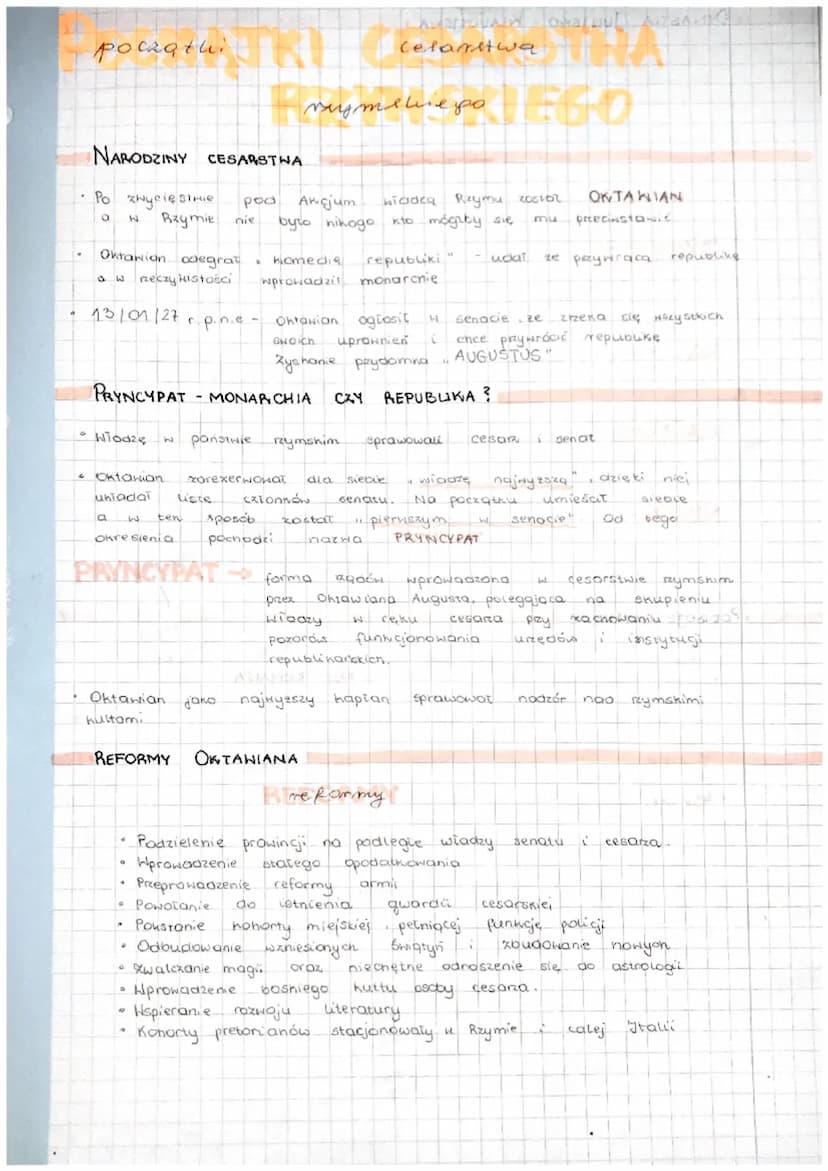 POCZĄTKI CESARSTWA
początki cesarstwa
RZYMSKIEGO
rzymskiego
NARODZINY CESARSTWA
• Po zwycięstwie pod Akcjum władcą Rzymu został OKTAWIAN
a w Rzymie nie było nikogo kto mógłby się mu przeciwstawić
• Oktawian odegrał „komedię republiki" - udał że przywraca republikę
a w rzeczywistości wprowadził monarchię
• 13/01/27 r. p.n.e - Oktawian ogłosił w senacie, że zrzeka się wszystkich
swoich uprawnień i chce przywrócić republikę
Zyskanie przydomka „AUGUSTUS"
PRYNCYPAT - MONARCHIA CZY REPUBLIKA?
• Władzę w państwie rzymskim sprawowali cesarz i senat
• Oktawian zarezerwował dla siebie „władzę najwyższą", dzięki niej
układał listę członków senatu. Na początku umieścił siebie
a w ten sposób został „pierwszym w senacie" Od tego
określenia pochodzi nazwa PRYNCYPAT
PRYNCYPAT → forma rządów wprowadzona w cesarstwie rzymskim
przez Oktawiana Augusta, polegająca na skupieniu
władzy w ręku cesarza przy zachowaniu
pozorów funkcjonowania urzędów i instytucji
republikańskich.
• Oktawian jako najwyższy kapłan sprawował nadzór nad rzymskimi
kultami
REFORMY OKTAWIANA
REFORMY
reformy
• Podzielenie prowincji na podległe władzy senatu i cesarza.
• Wprowadzenie stałego opodatkowania
• Przeprowadzenie reformy armii
• Powołanie do istnienia gwardii cesarskiej
• Powstanie kohorty miejskiej, pełniącej funkcję policji
• Odbudowanie wzniesionych świątyń i zbudowanie nowych
• Zwalczanie magii oraz niechętne odnoszenie się do astrologii
• Wprowadzenie boskiego kultu osoby cesarza.
• Wspieranie rozwoju literatury
• Kohorty pretorianów stacjonowały w Rzymie i całej Italii